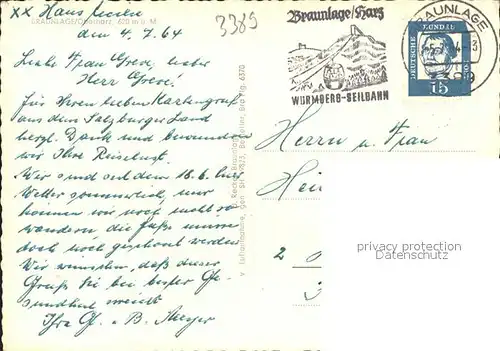 3389
BRAUNLAGE/Oberharz, 620 m ü. M.
den 4.7.64
Liebe Frau Grese, lieber
Herr Grese!
Für Ihren lieben Kartengruß
aus dem Salzburger Land
herzl. Dank und bewundern
wir Ihre Reiselust.
Wir sind seit dem 18.6. hier
Wetter sommerlich, nur
können wir noch nicht so
wandern die Füße müssen
doch noch geschont werden
Wir wünschen, daß dieser
Gruß Sie bei bester Ge-
sundheit erreicht
Ihre G. u. B. Meyer
Braunlage/Harz
WURMBERG-SEILBAHN
BRAUNLAGE
DEUTSCHE BUNDESPOST
15
Herrn u. Frau
Hei
2
privacy protection
Datenschutz